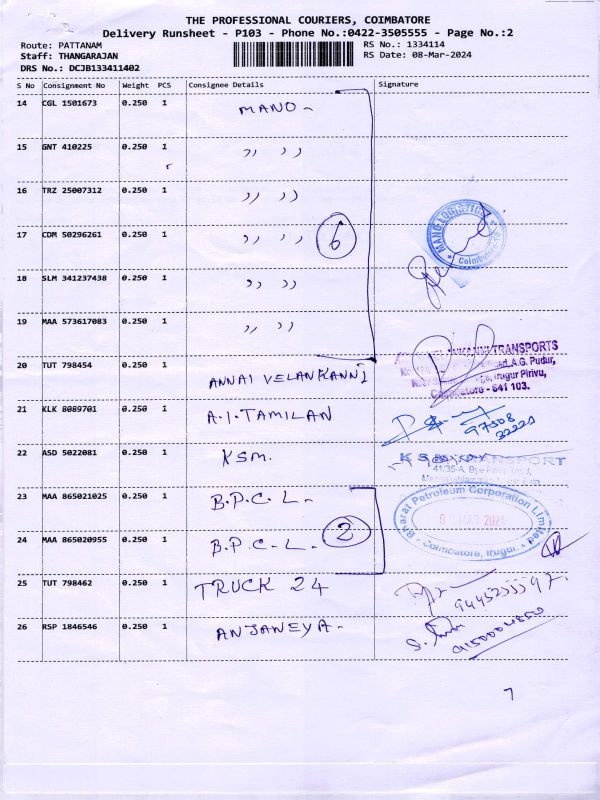 THE PROFESSIONAL COURIERS, COIMBATORE
Delivery Runsheet - P103 - Phone No.:0422-3505555 - Page No.:2
Route: PATTANAM
RS No.: 1334114
Staff: THANGARAJAN
RS Date: 08-Mar-2024
DRS No.: DCJB133411402
S No Consignment No Weight PCS Consignee Details Signature
14 CGL 1501673 0.250 1 MANO -
15 GNT 410225 0.250 1 ,, ,,
16 TRZ 25007312 0.250 1 ,, ,,
17 CDM 50296261 0.250 1 ,, ,, 6
MANO LOGISTICS
Coimbatore
18 SLM 341237438 0.250 1 ,, ,,
19 MAA 573617083 0.250 1 ,, ,,
TRANSPORTS
A.G. Pudur,
Irugur Pirivu,
Coimbatore - 641 103.
20 TUT 798454 0.250 1 ANNAI VELANKANNI
21 KLK 8089701 0.250 1 A.I.TAMILAN
22 ASD 5022081 0.250 1 KSM.
41/35-A, Bye
23 MAA 865021025 0.250 1 B.P.C.L -
Bharat Petroleum Corporation Limited
2024
Coimbatore, Irugur.
24 MAA 865020955 0.250 1 B.P.C-L - 2
25 TUT 798462 0.250 1 TRUCK 24
26 RSP 1846546 0.250 1 ANJANEYA -
7